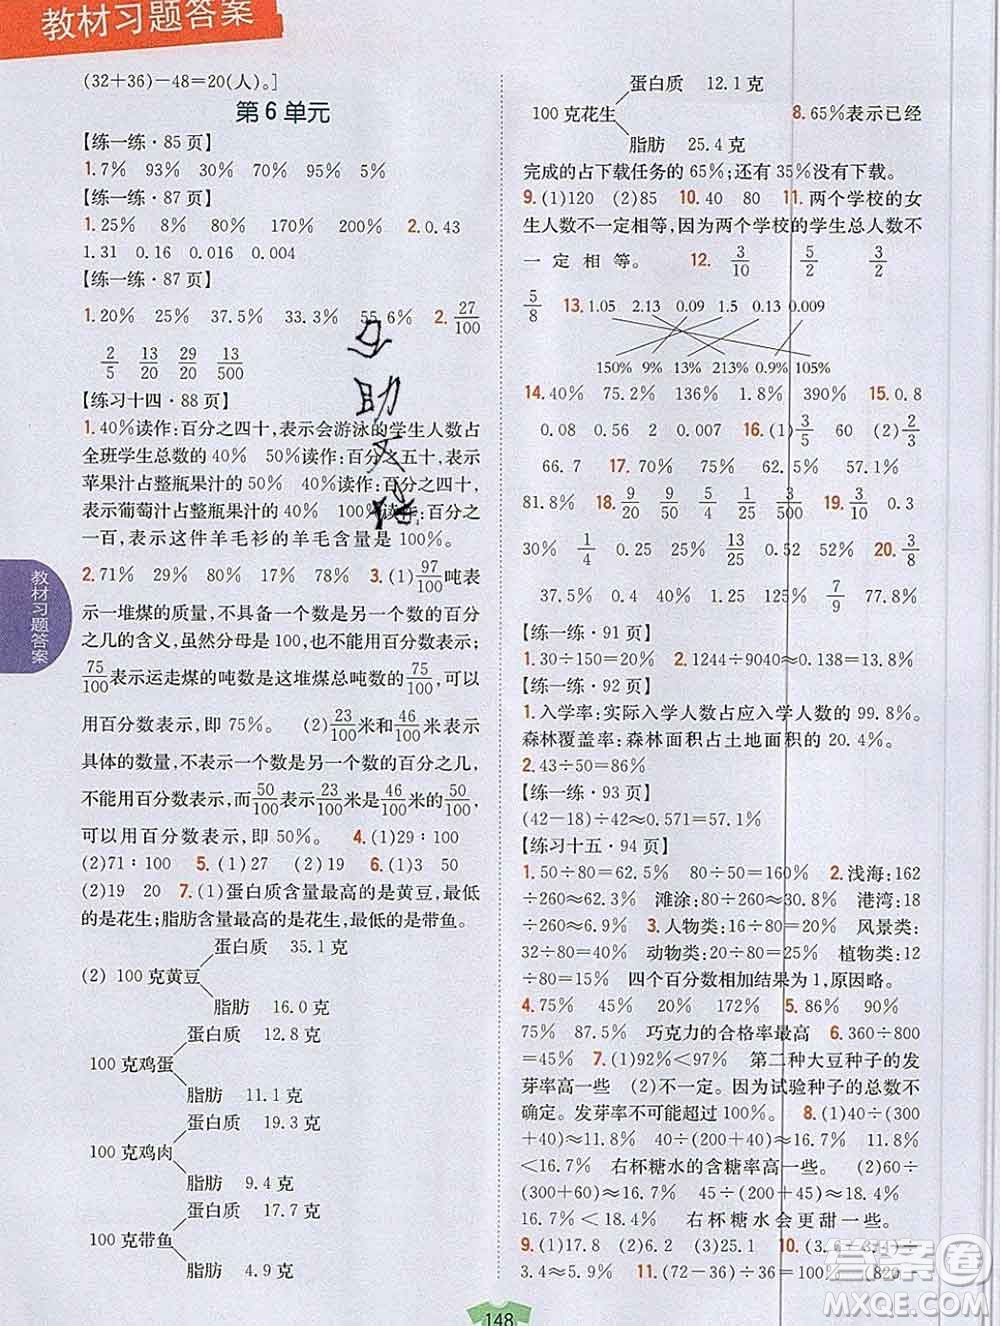 教材习题答案
(32+36)-48=20(人)。]
第6单元
【练一练·85页】
1.7% 93% 30% 70% 95% 5%
【练一练·87页】
1.25% 8% 80% 170% 200% 2.0.43
1.31 0.16 0.016 0.004
【练一练·87页】
1.20% 25% 37.5% 33.3% 55.6% 2.27/100
2/5 13/20 29/20 13/500
【练习十四·88页】
1.40%读作:百分之四十,表示会游泳的学生人数占
全班学生总数的40% 50%读作:百分之五十,表示
苹果汁占整瓶果汁的50% 40%读作:百分之四十,
表示葡萄汁占整瓶果汁的40% 100%读作:百分之
一百,表示这件羊毛衫的羊毛含量是100%。
2.71% 29% 80% 17% 78% 3.(1)97/100吨表
示一堆煤的质量,不具备一个数是另一个数的百分
之几的含义,虽然分母是100,也不能用百分数表示;
75/100表示运走煤的吨数是这堆煤总吨数的75/100,可以
用百分数表示,即75%。 (2)23/100米和46/100米表示
具体的数量,不表示一个数是另一个数的百分之几,
不能用百分数表示,而50/100表示23/100米是46/100米的50/100,
可以用百分数表示,即50%。 4.(1)29∶100
(2)71∶100 5.(1)27 (2)129 6.(1)3 50
(2)19 20 7.(1)蛋白质含量最高的是黄豆,最低
的是花生;脂肪含量最高的是花生,最低的是带鱼。
蛋白质 35.1克
(2) 100克黄豆
脂肪 16.0克
蛋白质 12.8克
100克鸡蛋
脂肪 11.1克
蛋白质 19.3克
100克鸡肉
脂肪 9.4克
蛋白质 17.7克
100克带鱼
脂肪 4.9克
蛋白质 12.1克
100克花生 8.65%表示已经
脂肪 25.4克
完成的占下载任务的65%;还有35%没有下载。
9.(1)120 (2)85 10.40 80 11.两个学校的女
生人数不一定相等,因为两个学校的学生总人数不
一定相等。 12.3/10 5/2 3/2
5/8 13.1.05 2.13 0.09 1.5 0.13 0.009
150% 9% 13% 213% 0.9% 105%
14.40% 75.2% 136% 1.8% 390% 15.0.8
0.08 0.56 2 0.07 16.(1)3/5 60 (2)2/3
66.7 17.8.3% 140% 77.8% 42.9%
81.8% 18.9/20 9/50 5/4 1/500 3/500 19.3/10
30% 1/4 0.25 0.4 40% 13/25 52% 20.3/8
37.5% 30% 42.9% 18.2% 7/9 77.8%
【练一练·91页】
1.30÷150=20% 2.1244÷9040≈0.138=13.8%
【练一练·92页】
1.入学率:实际入学人数占应入学人数的99.8%。
森林覆盖率:森林面积占土地面积的20.4%。
2.43÷50=86%
【练一练·93页】
(42-18)÷42≈0.571=57.1%
【练习十五·94页】
1.50÷80=62.5% 80÷50=160% 2.浅海:162
÷260≈62.3% 滩涂:80÷260≈30.8% 港湾:18
÷260≈6.9% 3.人物类:16÷80=20% 风景类:
32÷80=40% 动物类:20÷80=25% 植物类:
12÷80=15% 四个百分数相加结果为1,原因略。
4.75% 45% 20% 172% 5.86% 90%
75% 87.5% 巧克力的合格率最高 6.360÷800
=45% 7.(1)92%<97% 第二种大豆种子的发
芽率高一些 (2)不一定。因为试验种子的总数不
确定。发芽率不可能超过100%。 8.(1)40÷(300
+40)≈11.8% 40÷(200+40)≈16.7% 11.8%
<16.7% 右杯糖水的含糖率高一些。 (2)60÷
(300+60)≈16.7% 50÷(200+50)=20%
16.7%<20% 右杯糖水会更甜一些。
9.(1)12.6 (2)6.2 (3)25.1 10.
3.4≈5.9% 11.(72-36)÷36=100%
教材习题答案
148
答案圈
MXQE.COM